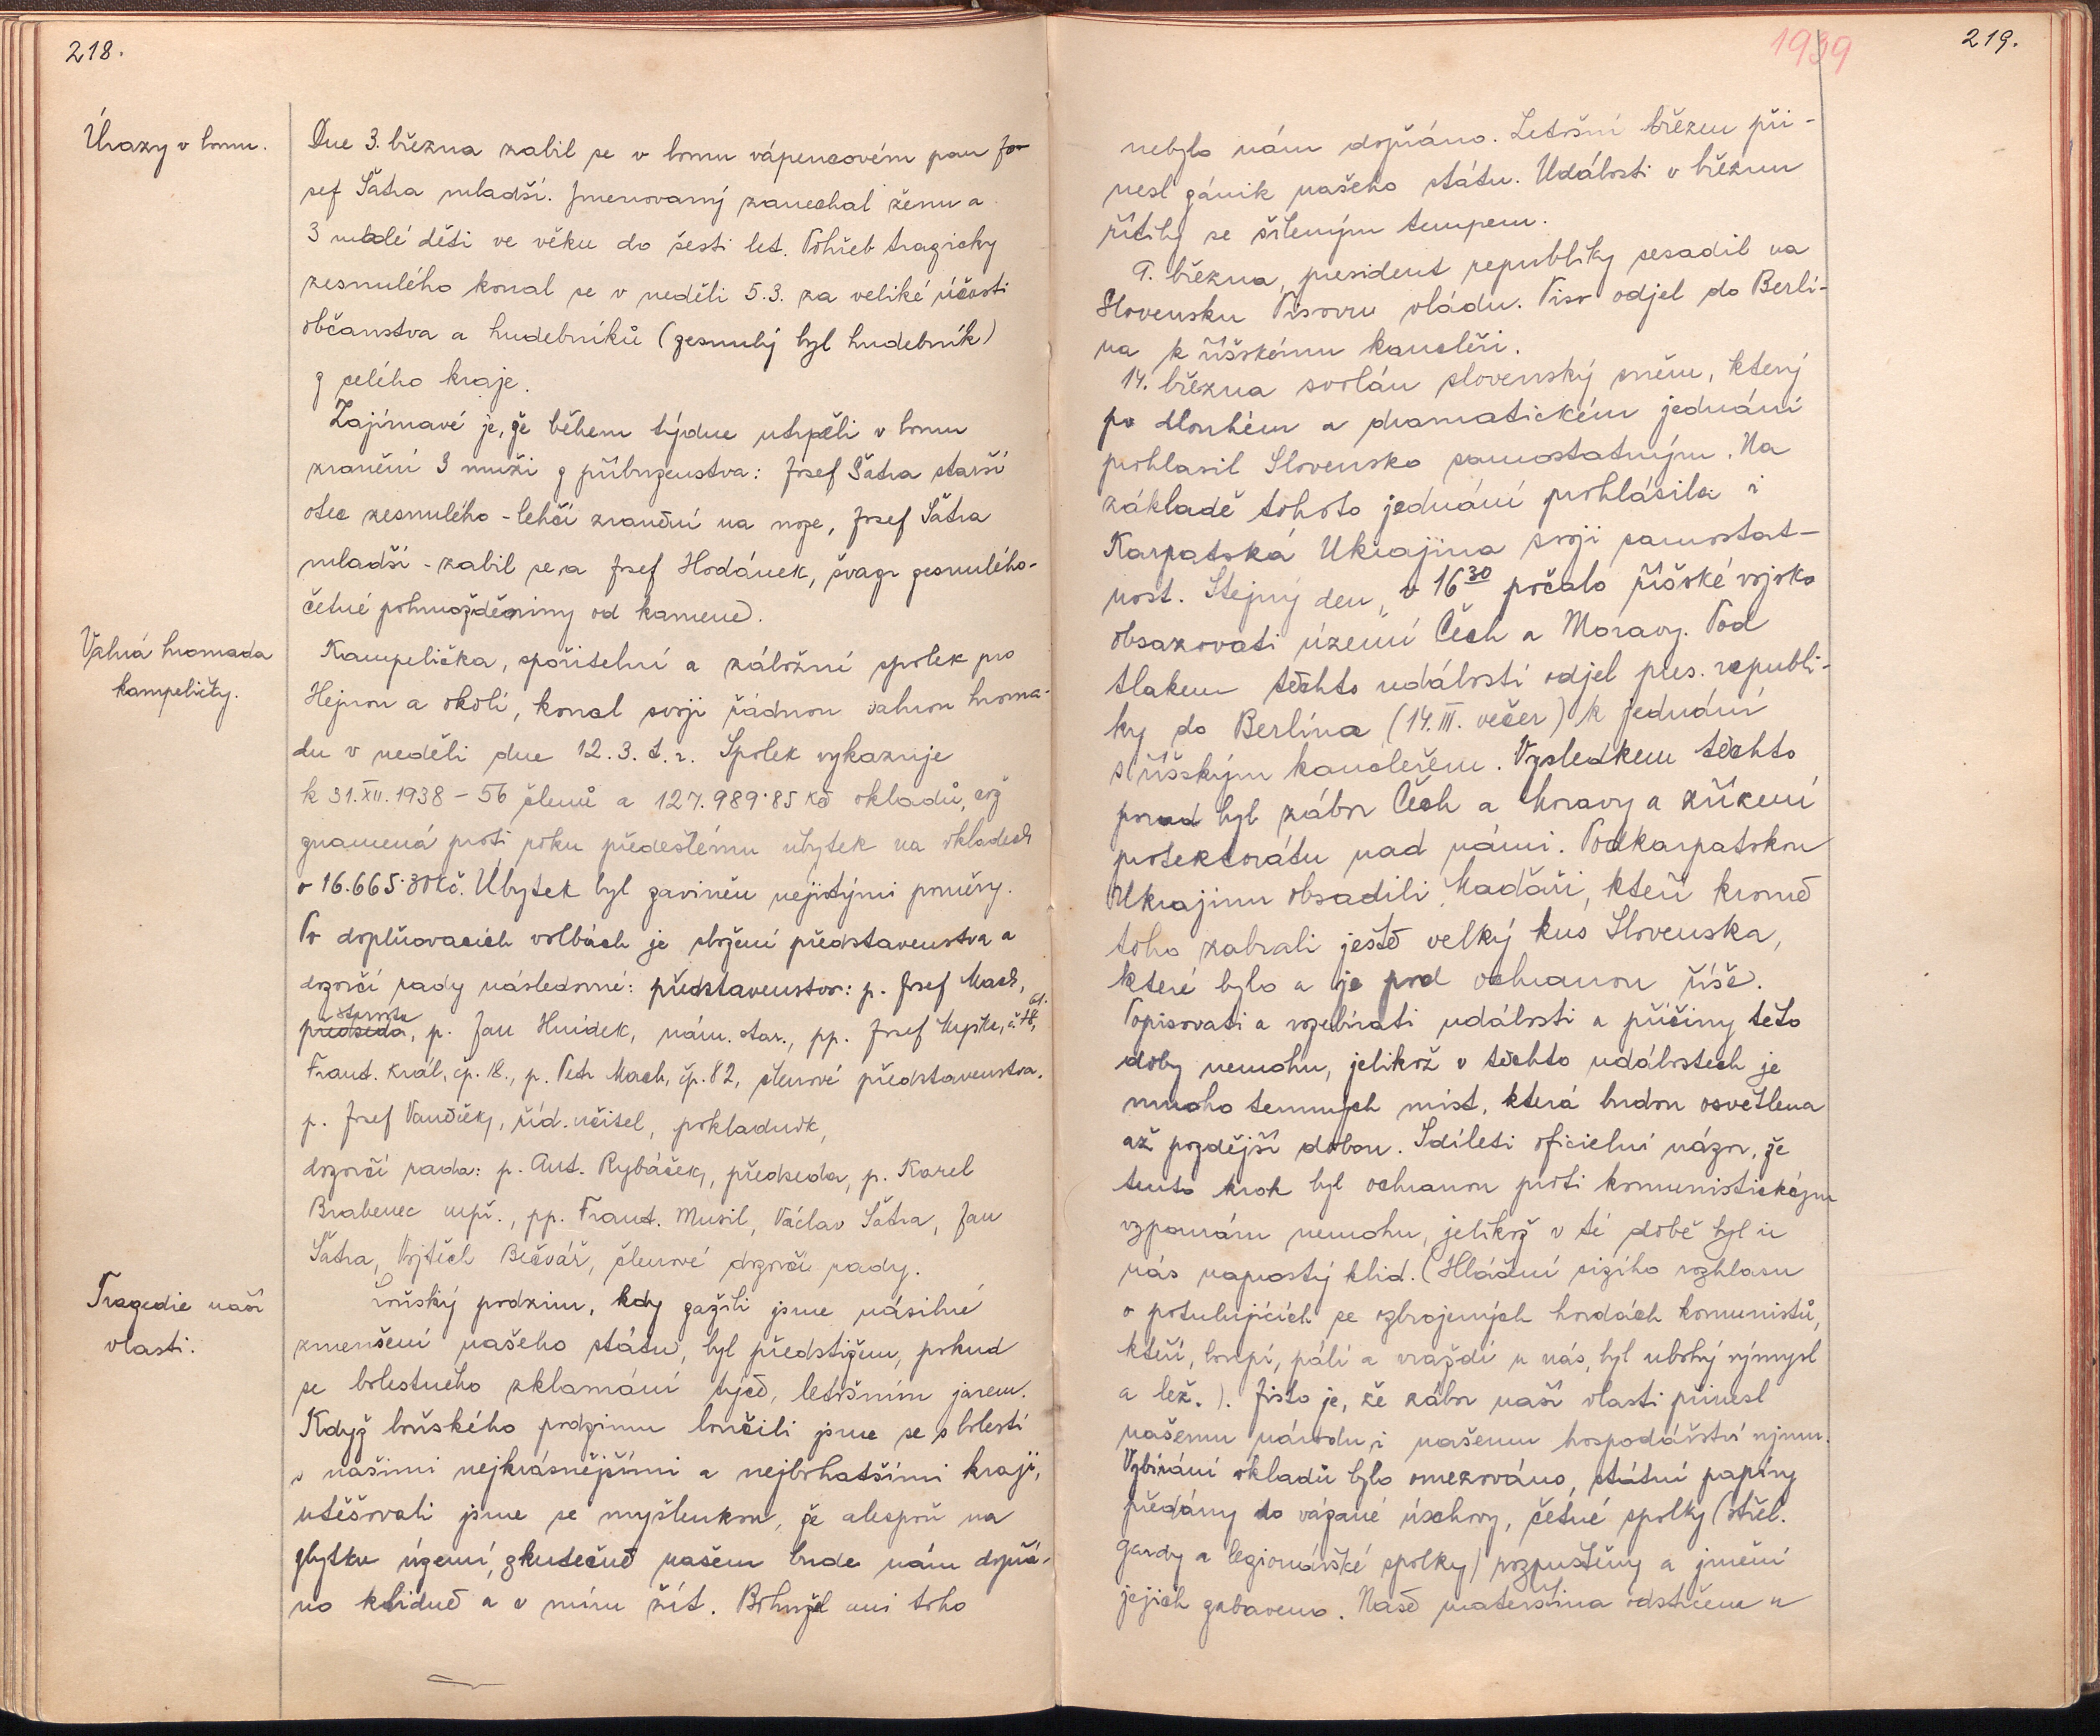 218.
Úrazy v lomu.
Dne 3. března zabil se v lomu vápencovém pan Jo-
sef Šátra mladší. Jmenovaný zanechal ženu a
3 malé děti ve věku do šesti let. Pohřeb tragicky
zesnulého konal se v neděli 5.3. za veliké účasti
občanstva a hudebníků (zesnulý byl hudebník)
z celého kraje.
Zajímavé je, že během týdne utrpěli v lomu
zranění 3 muži z příbuzenstva: Josef Šátra starší
otec zesnulého - lehčí zranění na noze, Josef Šátra
mladší - zabil se, a Josef Hodánek, švagr zesnulého -
četné pohmožděniny od kamene.
Valná hromada
kampeličky.
Kampelička, spořitelní a záložní spolek pro
Hejnou a okolí, konal svoji řádnou valnou hroma-
du v neděli dne 12.3. t.r. Spolek vykazuje
k 31.XII.1938 - 56 členů a 127.989·85 Kč vkladů, což
znamená proti roku předešlému úbytek na vkladech
o 16.665·30 Kč. Úbytek byl zaviněn nejistými poměry.
Po doplňovacích volbách je složení představenstva a
dozorčí rady následovné: představenstvo: p. Josef Mach,
starosta
předseda, p. Jan Hnídek, nám. star., pp. Josef
Frant. Král, čp. 18., p. Petr Mach, čp. 82, členové představenstva.
p. Josef Vaněček, říd. učitel, pokladník,
dozorčí rada: p. Ant. Rybáček, předseda, p. Karel
Brabenec mpř., pp. Frant. Musil, Václav Šátra, Jan
Šátra, Vojtěch Bečvář, členové dozorčí rady.
Tragedie naší
vlasti.
Loňský podzim, kdy zažili jsme násilné
zmenšení našeho státu, byl předstižen, pokud
se bolestného zklamání týče, letošním jarem.
Když loňského podzimu loučili jsme se s bolestí
s našimi nejkrásnějšími a nejbohatšími kraji,
utěšovali jsme se myšlenkou, že alespoň na
zbytku území, skutečně našem bude nám dopřá-
no klidně a v míru žít. Bohužel ani toho
1939
219.
nebylo nám dopřáno. Letošní březen při-
nesl zánik našeho státu. Události v březnu
řítily se šíleným tempem.
9. března, president republiky sesadil na
Slovensku Tisovu vládu. Tiso odjel do Berlí-
na k říšskému kancléři.
14. března svolán slovenský sněm, který
po dlouhém a dramatickém jednání
prohlasil Slovensko samostatným. Na
základě tohoto jednání prohlásila i
Karpatská Ukrajina svoji samostat-
nost. Stejný den, v 16³⁰ počalo říšské vojsko
obsazovati území Čech a Moravy. Pod
tlakem těchto událostí odjel pres. republi-
ky do Berlína (14.III. večer) k jednání
s říšským kancléřem. Výsledkem těchto
porad byl zábor Čech a Moravy a zřízení
protektorátu nad námi. Podkarpatskou
Ukrajinu obsadili Maďaři, kteří kromě
toho zabrali ještě velký kus Slovenska,
které bylo a je pod ochranou říše.
Popisovati a rozebírati události a příčiny této
doby nemohu, jelikož v těchto událostech je
mnoho temných míst, která budou osvětlena
až pozdější dobou. Sdíleti oficielní názor, že
tento krok byl ochranou proti komunistickým
vzpourám nemohu, jelikož v té době byl u
nás naprostý klid. (Hlášení cizího rozhlasu
o potulujících se ozbrojených hordách komunistů,
kteří, loupí, pálí a vraždí u nás, byl ubohý výmysl
a lež.). Jisto je, že zábor naší vlasti přinesl
našemu národu i našemu hospodářství újmu.
Vybírání vkladů bylo omezováno, státní papíry
předány do vázané úschovy, četné spolky (střel.
gardy a legionářské spolky) rozpuštěny a jmění
jejich zabaveno. Naše mateřština odstrčena u